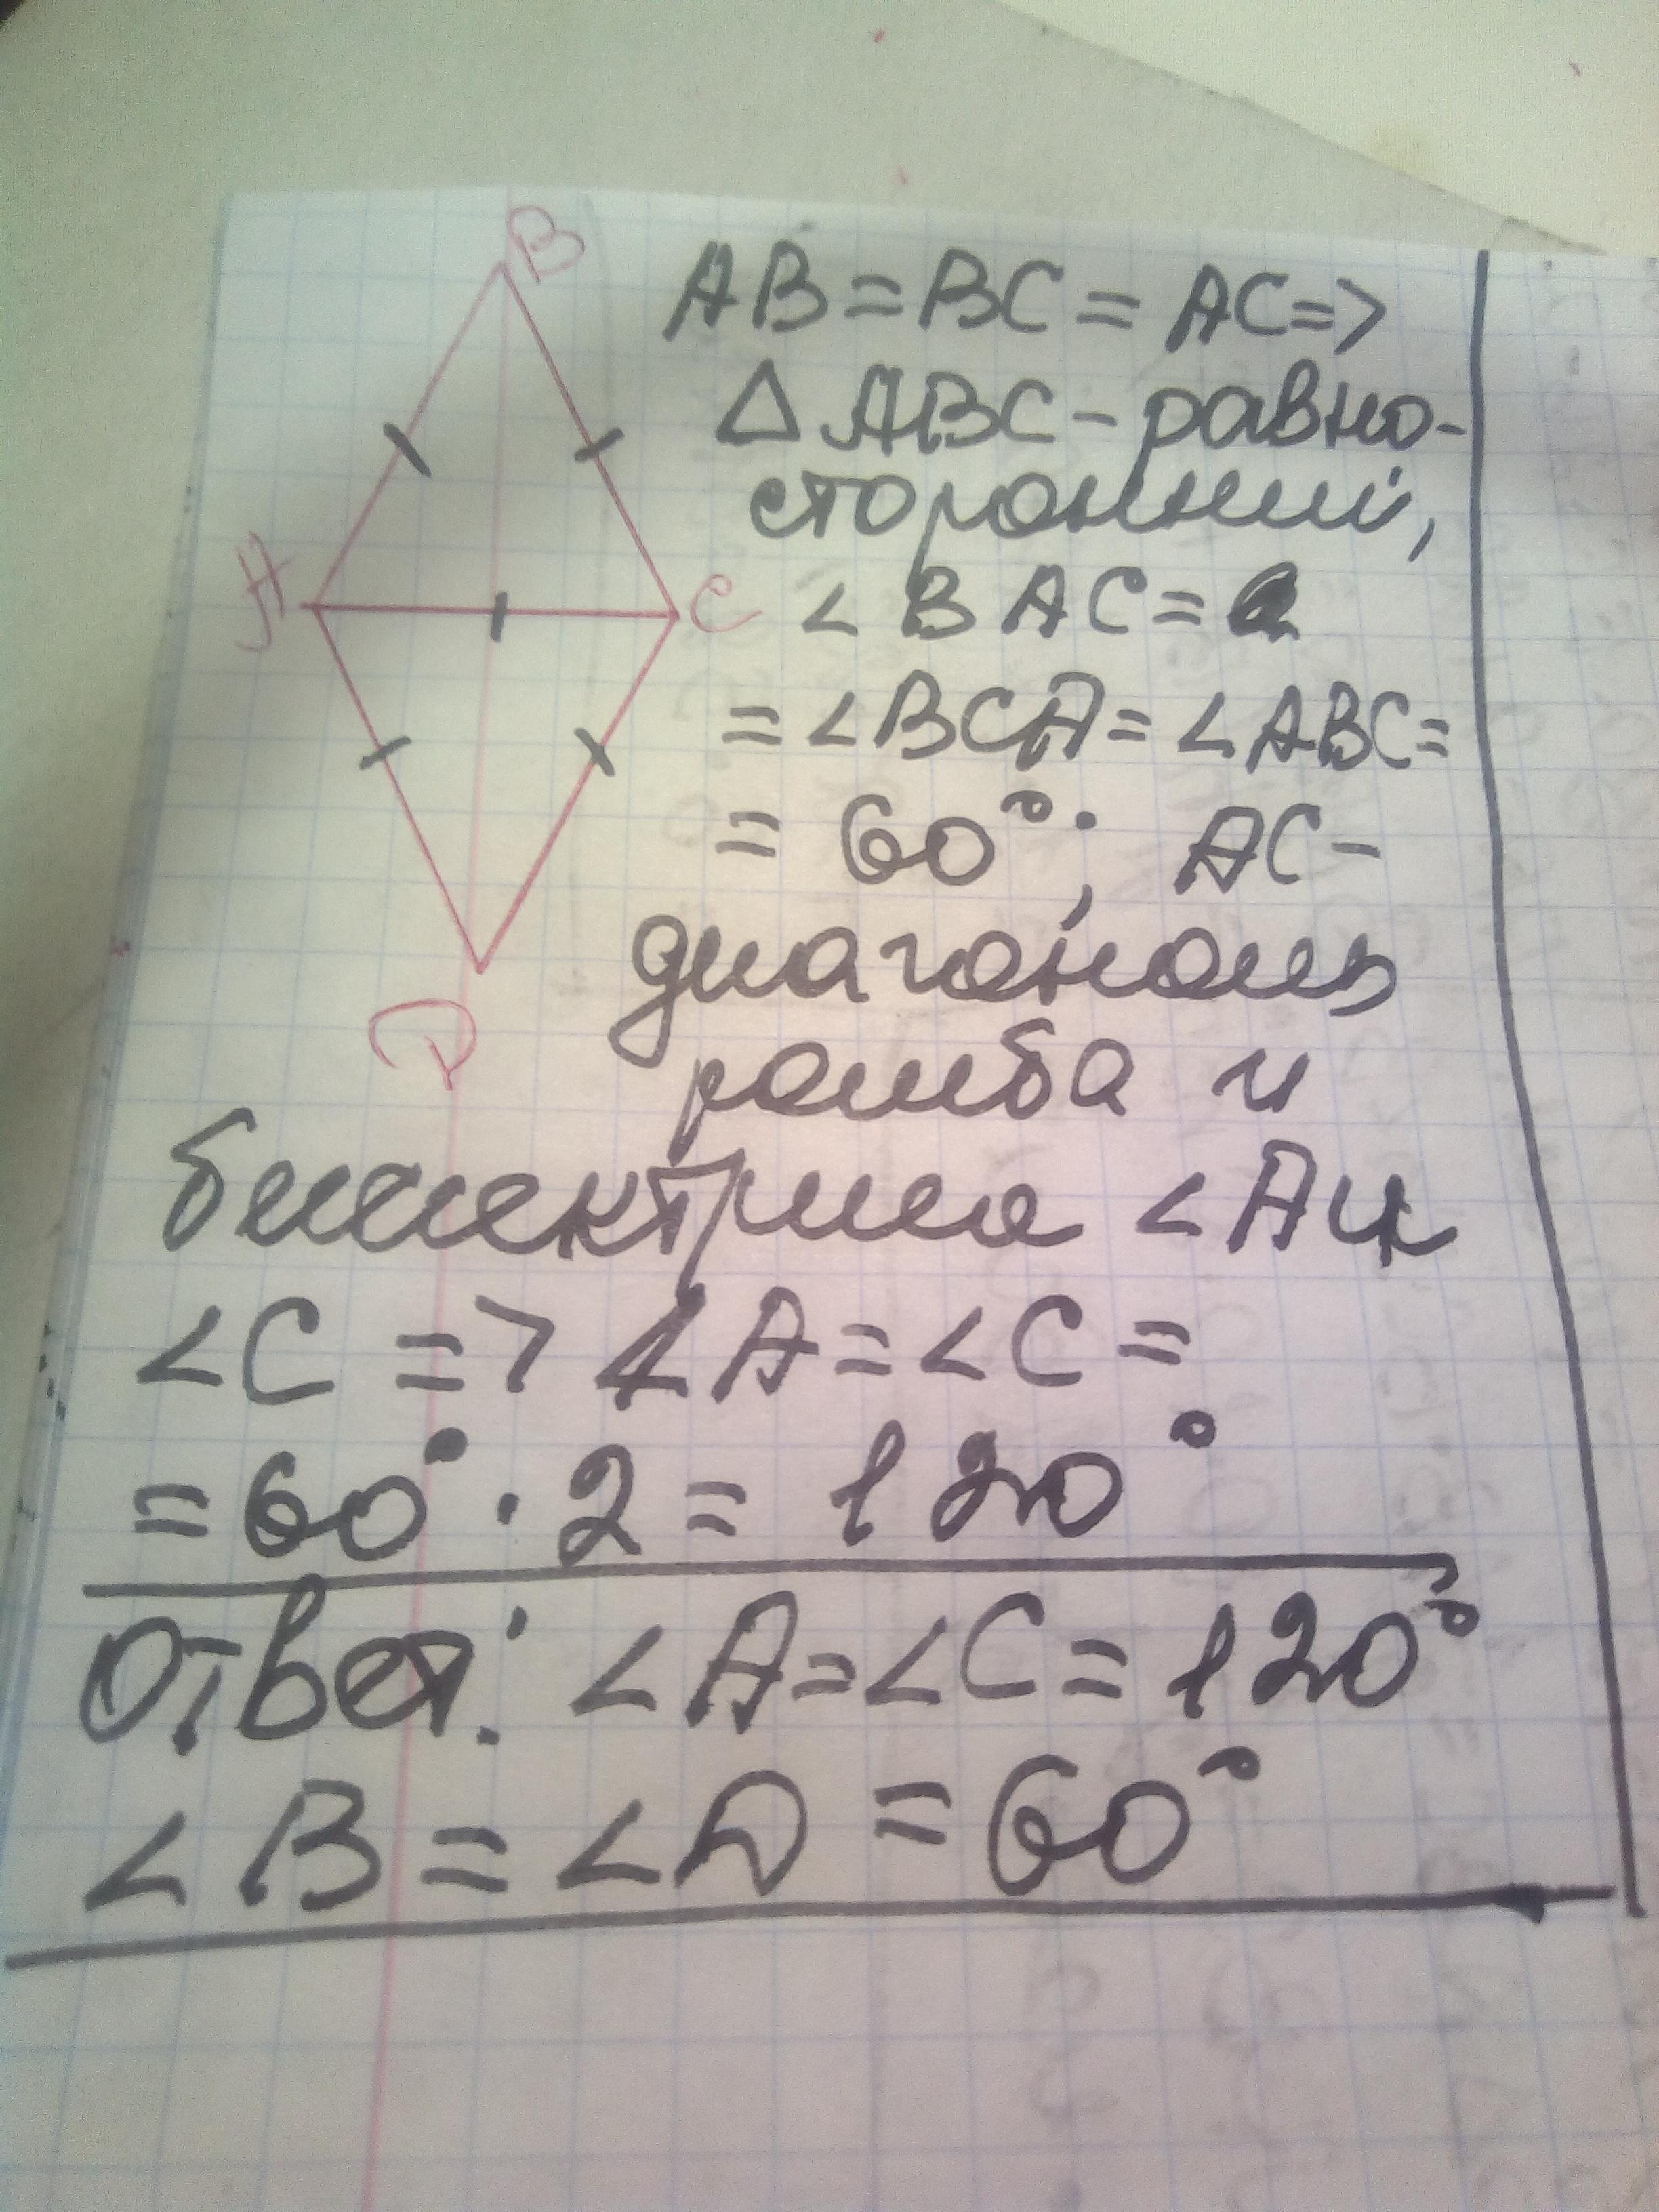 B
A
C
D
AB = BC = AC =>
△ ABC - равно-
сторонний,
< BAC =
= < BCA = < ABC =
= 60°; AC -
диагональ
ромба и
биссектриса < A и
< C => < A = < C =
= 60° · 2 = 120°
Ответ: < A = < C = 120°
< B = < D = 60°